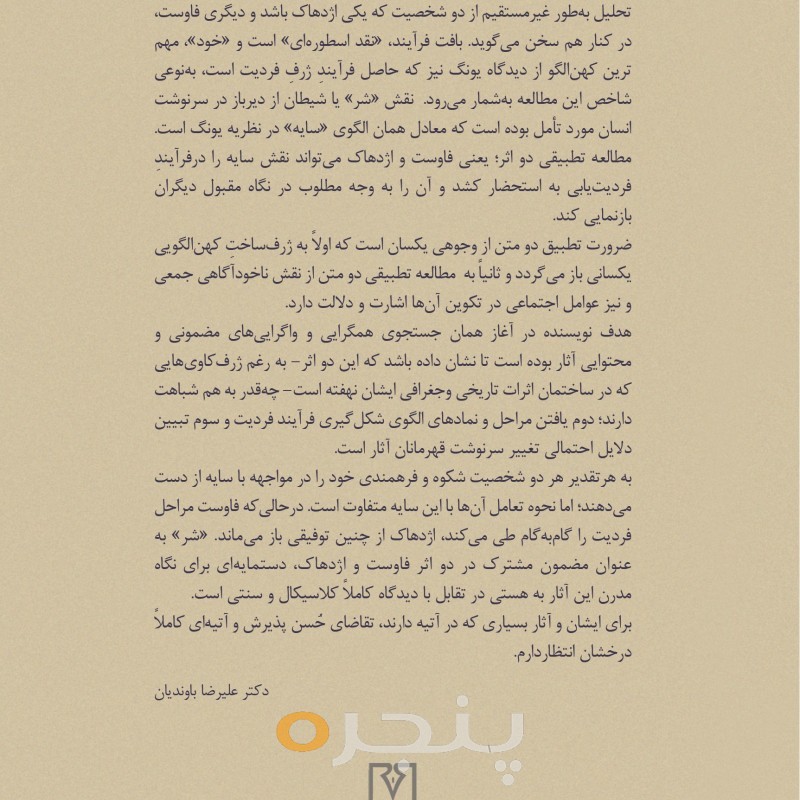 تحلیل به‌طور غیرمستقیم از دو شخصیت که یکی اژدهاک باشد و دیگری فاوست،
در کنار هم سخن می‌گوید. بافت فرآیند، «نقد اسطوره‌ای» است و «خود»، مهم
ترین کهن‌الگو از دیدگاه یونگ نیز که حاصل فرآیندِ ژرفِ فردیت است، به‌نوعی
شاخص این مطالعه به‌شمار می‌رود. نقش «شر» یا شیطان از دیرباز در سرنوشت
انسان مورد تأمل بوده است که معادل همان الگوی «سایه» در نظریه یونگ است.
مطالعه تطبیقی دو اثر؛ یعنی فاوست و اژدهاک می‌تواند نقش سایه را درفرآیندِ
فردیت‌یابی به استحضار کشد و آن را به وجه مطلوب در نگاه مقبول دیگران
بازنمایی کند.
ضرورت تطبیق دو متن از وجوهی یکسان است که اولاً به ژرف‌ساختِ کهن‌الگویی
یکسانی باز می‌گردد و ثانیاً به مطالعه تطبیقی دو متن از نقش ناخودآگاهی جمعی
و نیز عوامل اجتماعی در تکوین آن‌ها اشارت و دلالت دارد.
هدف نویسنده در آغاز همان جستجوی همگرایی و واگرایی‌های مضمونی و
محتوایی آثار بوده است تا نشان داده باشد که این دو اثر– به رغم ژرف‌کاوی‌هایی
که در ساختمان اثرات تاریخی وجغرافی ایشان نهفته است– چه‌قدر به هم شباهت
دارند؛ دوم یافتن مراحل و نمادهای الگوی شکل‌گیری فرآیند فردیت و سوم تبیین
دلایل احتمالی تغییر سرنوشت قهرمانان آثار است.
به هرتقدیر هر دو شخصیت شکوه و فرهمندی خود را در مواجهه با سایه از دست
می‌دهند؛ اما نحوه تعامل آن‌ها با این سایه متفاوت است. درحالی‌که فاوست مراحل
فردیت را گام‌به‌گام طی می‌کند، اژدهاک از چنین توفیقی باز می‌ماند. «شر» به
عنوان مضمون مشترک در دو اثر فاوست و اژدهاک، دستمایه‌ای برای نگاه
مدرن این آثار به هستی در تقابل با دیدگاه کاملاً کلاسیکال و سنتی است.
برای ایشان و آثار بسیاری که در آتیه دارند، تقاضای حُسن پذیرش و آتیه‌ای کاملاً
درخشان انتظاردارم.
دکتر علیرضا باوندیان
پنجره